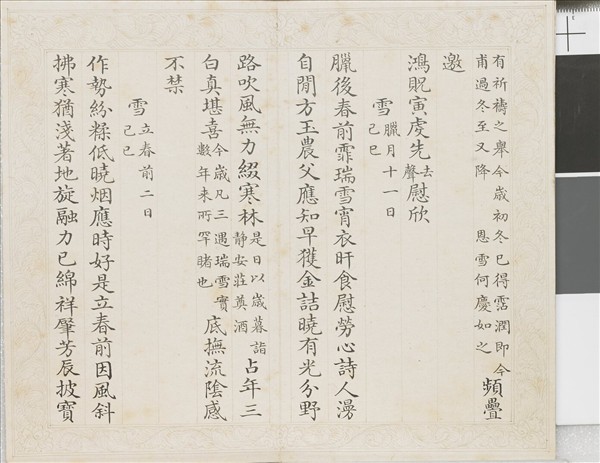 有祈禱之舉今歲初冬已得霑潤即今
甫過冬至又降 恩雪何慶如之
頻疊
邀
鴻貺寅虔先去聲慰欣
雪臘月十一日
己巳
臘後春前霏瑞雪宵衣旰食慰勞心詩人漫
自閒方玉農父應知早獲金詰曉有光分野
路吹風無力綴寒林是日以歲暮詣靜安莊奠酒占年三
白真堪喜今歲凡三遇瑞雪實數年來所罕睹也底撫流陰感
不禁
雪立春前二日
己巳
作勢紛糅低曉烟應時好是立春前因風斜
拂寒猶淺著地旋融力已綿祥肇芳辰披寶